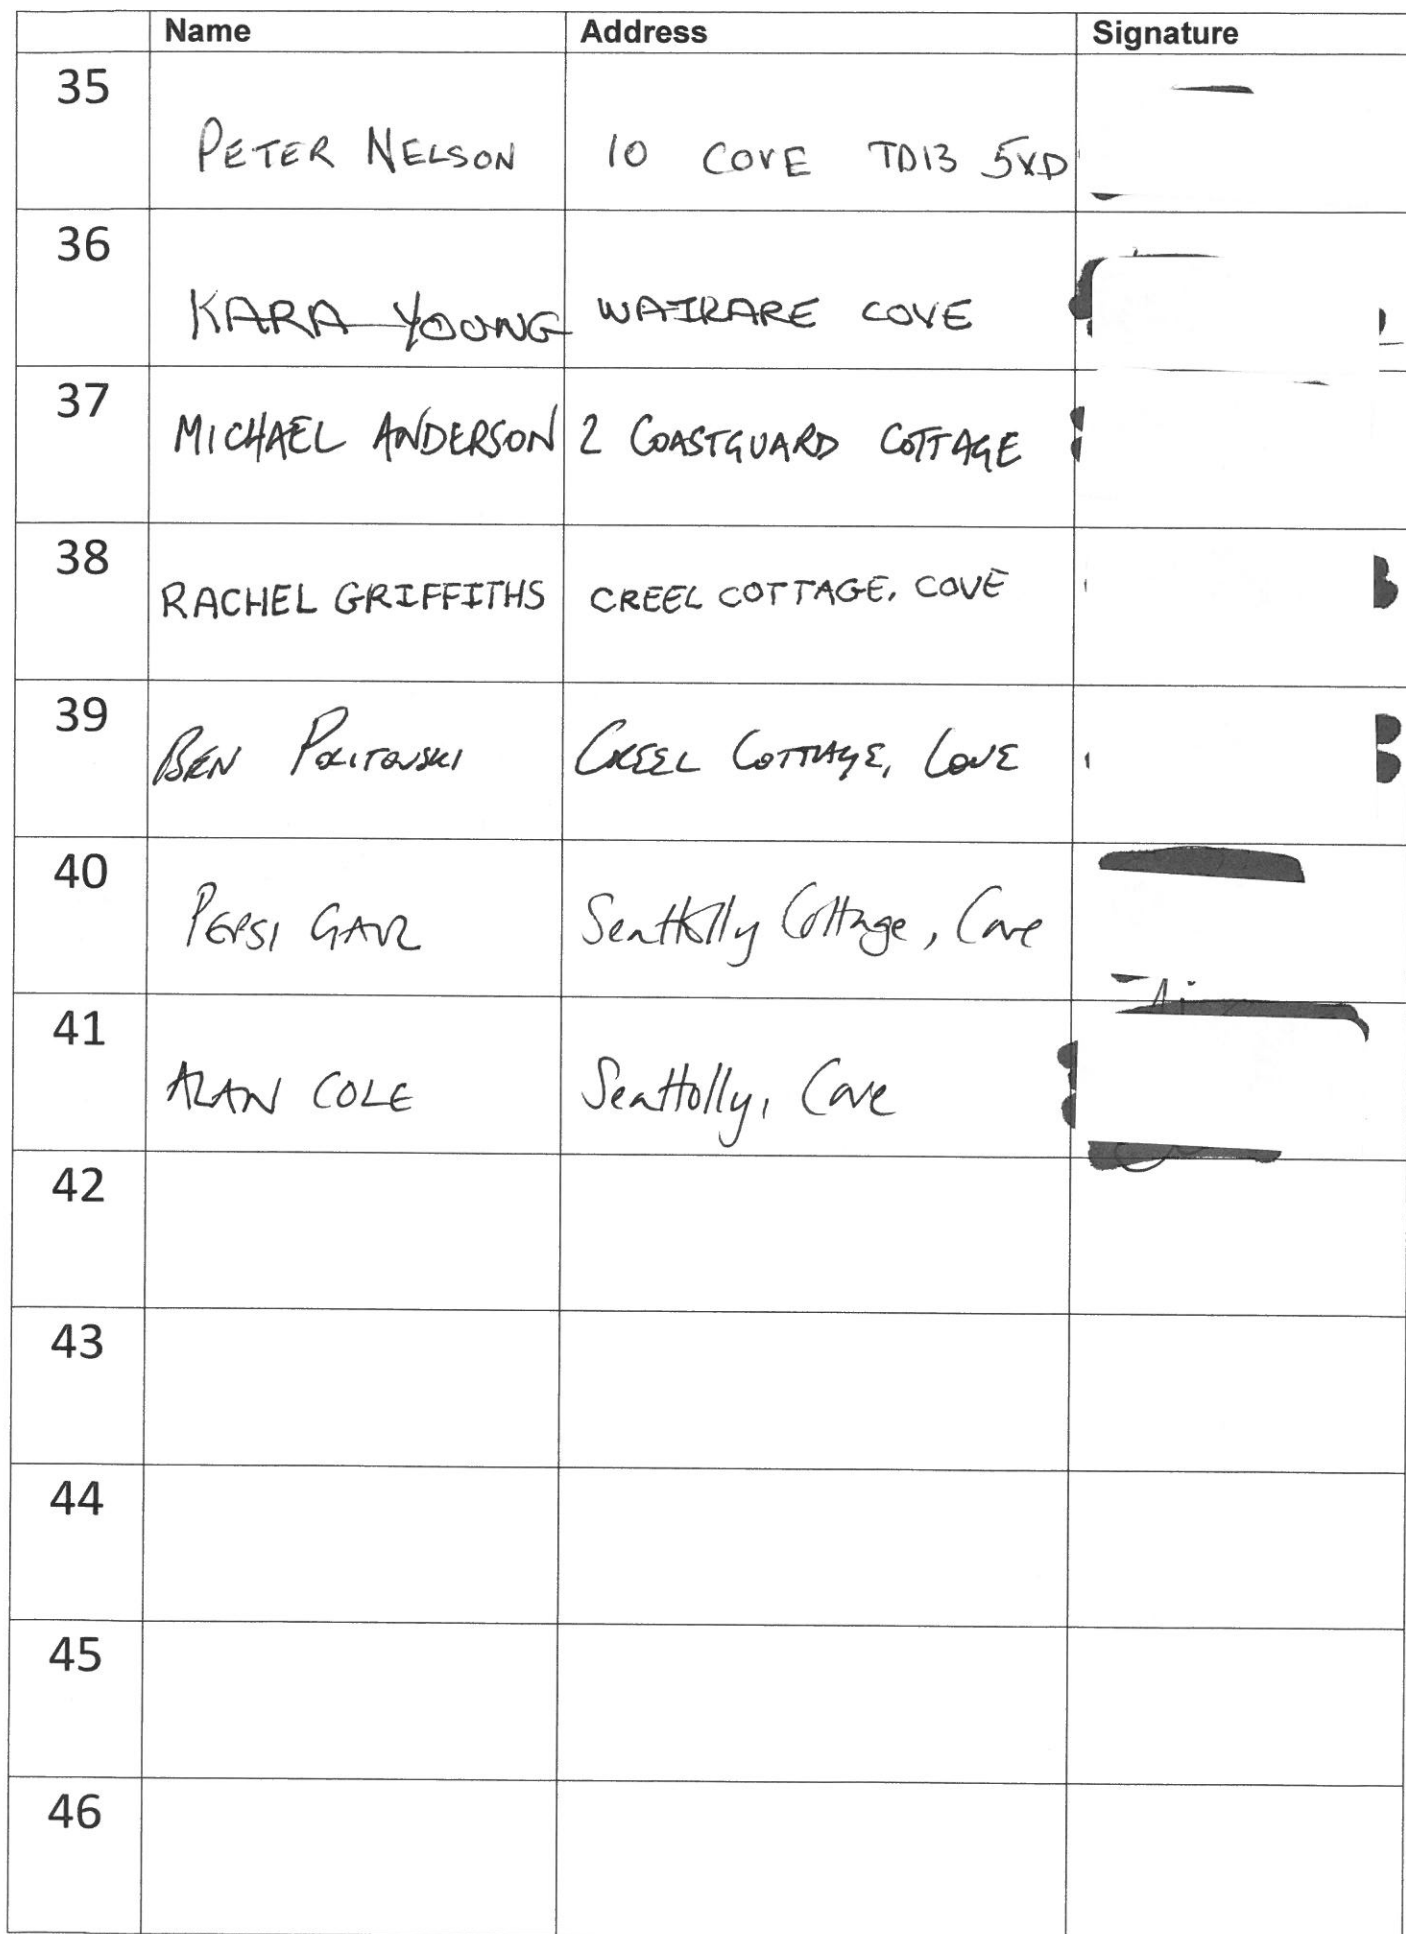 Name Address Signature
35
PETER NELSON 10 COVE TD13 5XD
36
KARA YOUNG WAIRARE COVE
37
MICHAEL ANDERSON 2 COASTGUARD COTTAGE
38
RACHEL GRIFFITHS CREEL COTTAGE, COVE
39
BEN POLITOWSKI CREEL COTTAGE, COVE
40
PEPSI Seatholly Cottage, Cove
41
ALAN COLE Seatholly, Cove
42
43
44
45
46